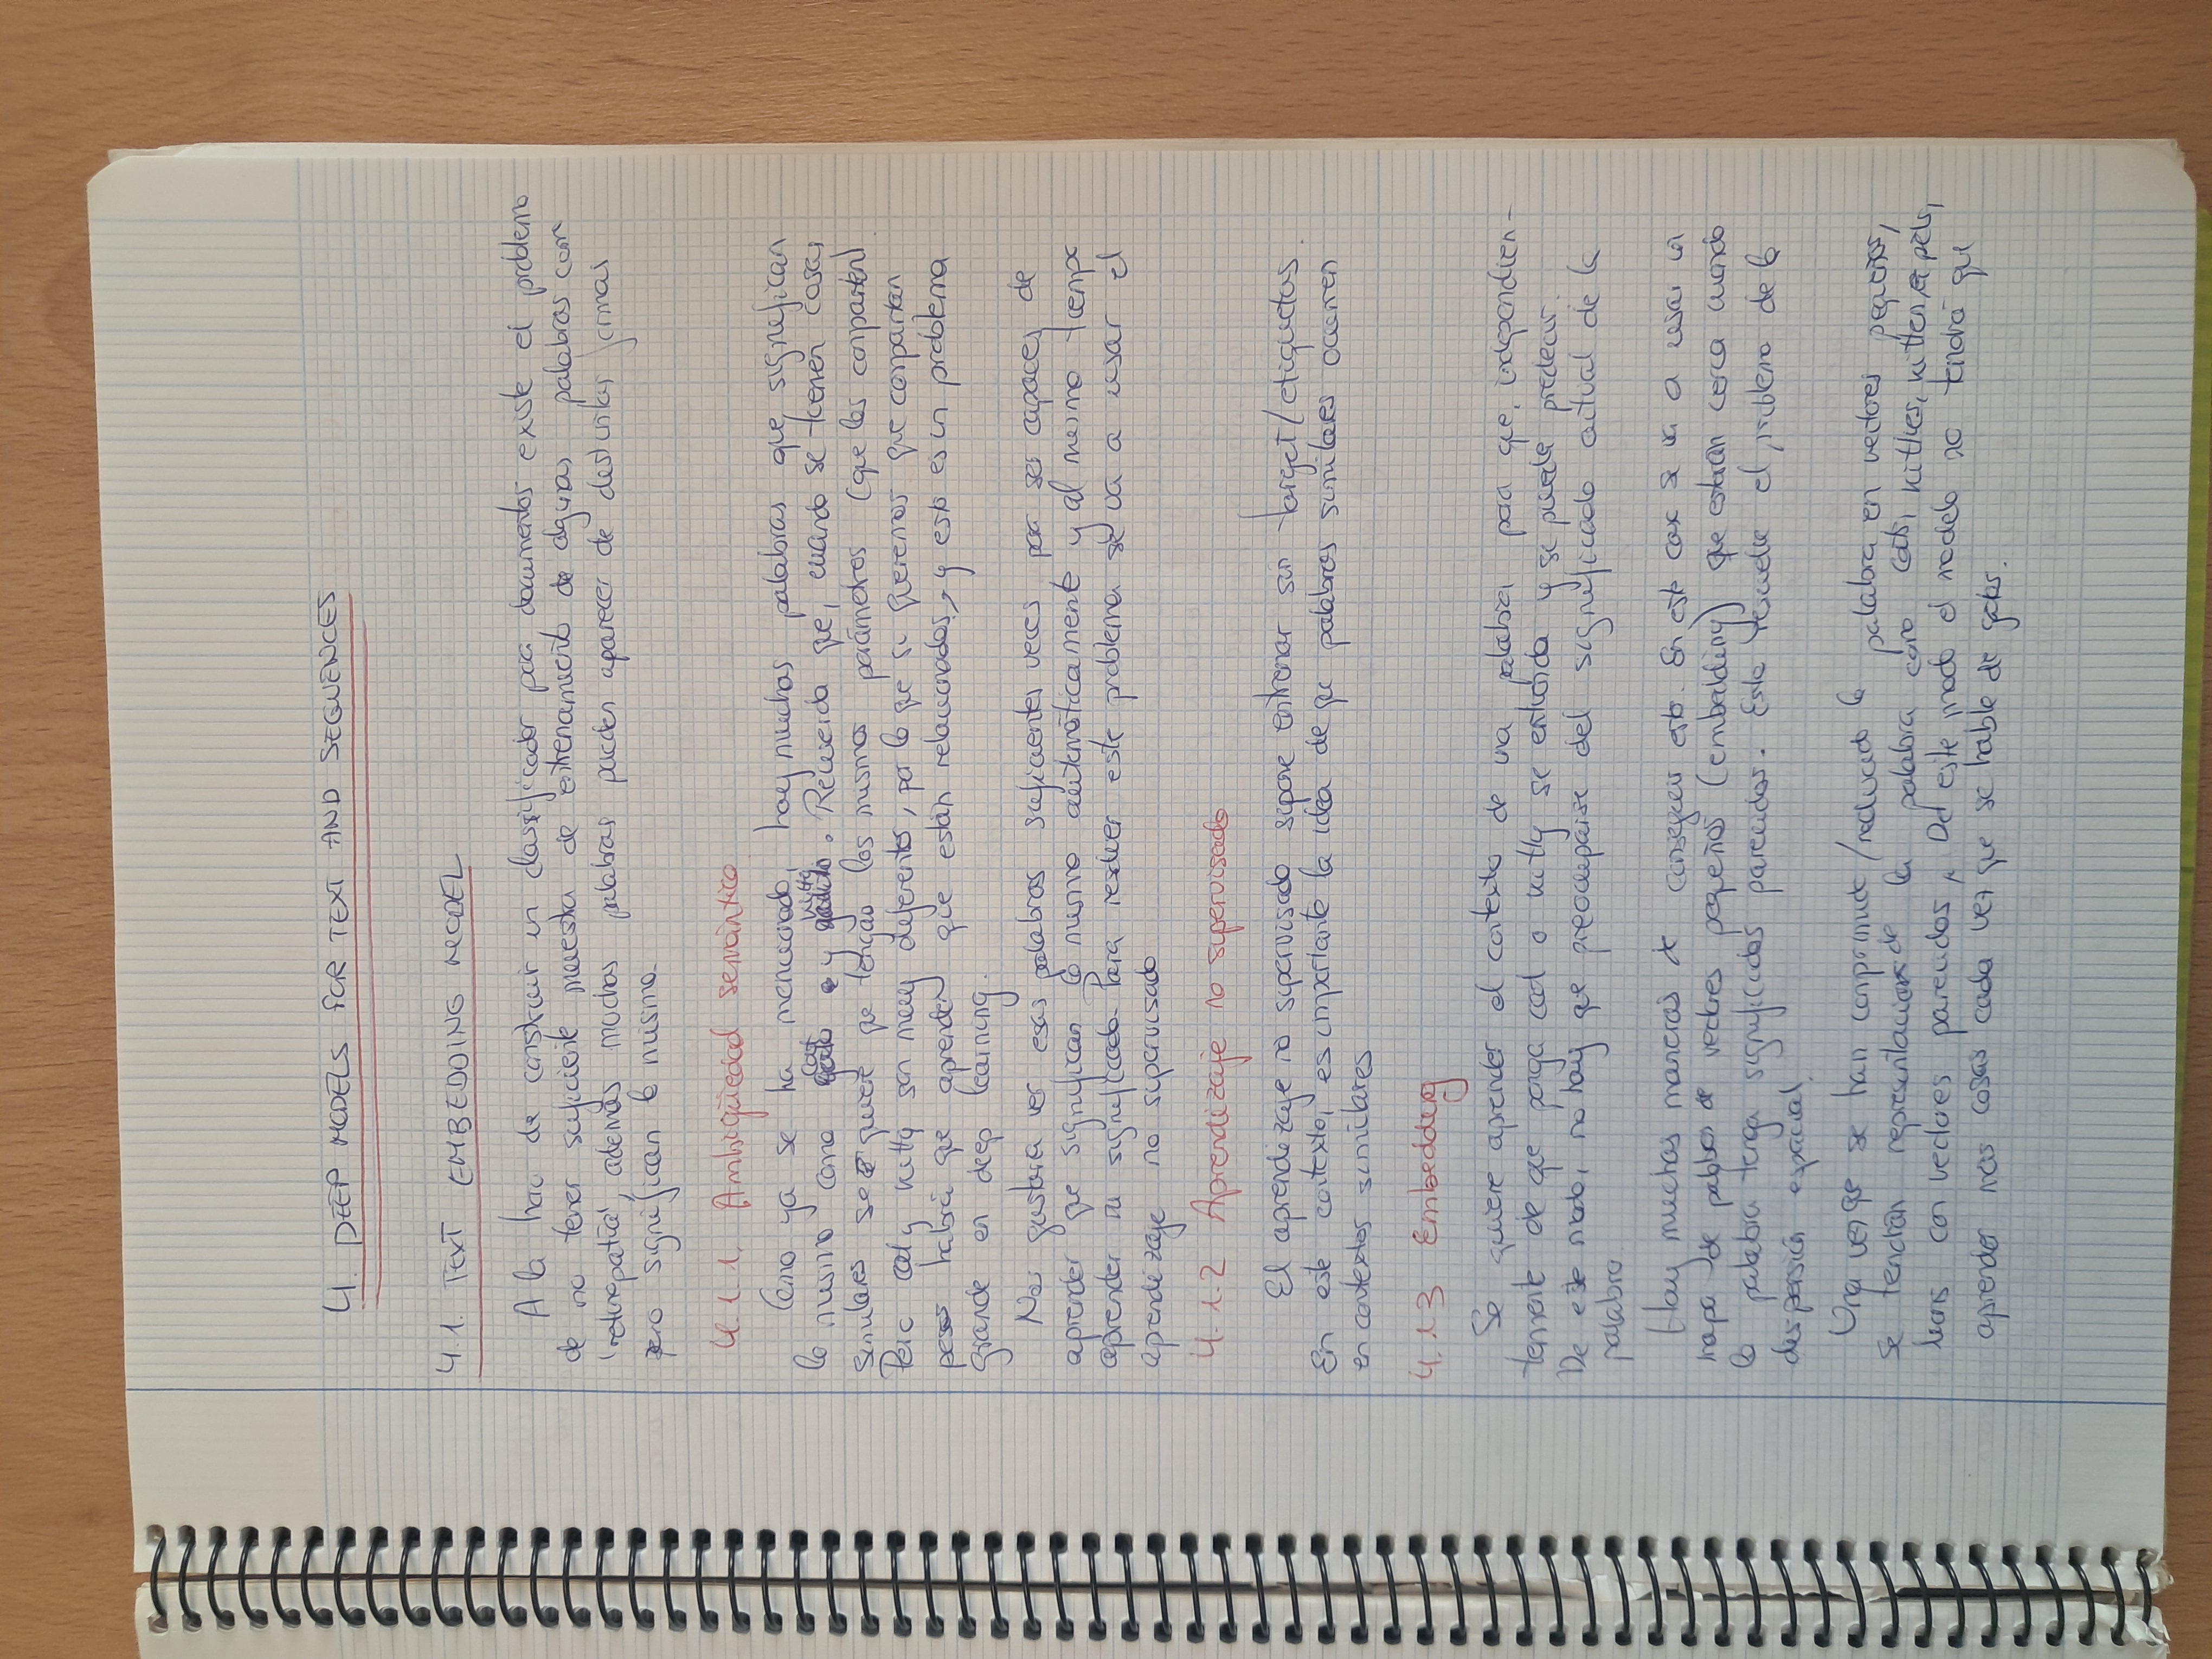 4. DEEP MODELS FOR TEXT AND SEQUENCES
4.1. TEXT EMBEDDING MODEL
A la hora de construir un classificador para documentos existe el problema
de no tener suficiente muestra de entrenamiento de algunas palabras com
'retinopatía', además muchas palabras pueden aparecer de distintas formas
pero significan lo mismo.
4.1.1. Ambigüedad semántica
Como ya se ha mencionado, hay muchas palabras que significan
lo mismo como cat y kitty. Recuerda que, cuando se tienen cosas
similares se quiere que tengan los mismos parámetros (que los comparten)
Pero cat y kitty son muy diferentes, por lo que si queremos que compartan
pesos habrá que aprender que están relacionados, y esto es un problema
grande en deep learning.
Nos gustaría ver esas palabras suficientes veces para ser capaces de
aprender que significan lo mismo automáticamente y al mismo tiempo
aprender su significado. Para resolver este problema se va a usar el
aprendizaje no supervisado
4.1.2 Aprendizaje no supervisado
El aprendizaje no supervisado supone entrenar sin target/etiquetas.
En este contexto, es importante la idea de que palabras similares ocurren
en contextos similares
4.1.3 Embedding
Se quiere aprender el contexto de una palabra para que, independien-
temente de que ponga cat o kitty se entienda y se pueda predecir.
De este modo, no hay que preocuparse del significado actual de la
palabra.
Hay muchas maneras de conseguir esto. En este caso se va a usar un
mapa de palabras de vectores pequeños (embedding) que estarán cerca cuando
la palabra tenga significados parecidos. Esto resuelve el problema de la
dispersión espacial.
Una vez que se han comprimido/reducido la palabra en vectores pequeños,
se tendrán representaciones de la palabra como cats, kitties, kitten, pets,
lions con vectores parecidos. De este modo el modelo no tendrá que
aprender más cosas cada vez que se hable de gatos.